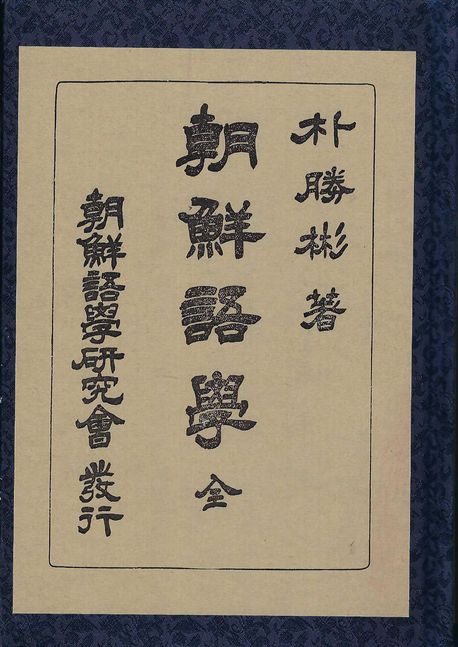 朴勝彬著
朝鮮語學全
朝鮮語學研究會發行